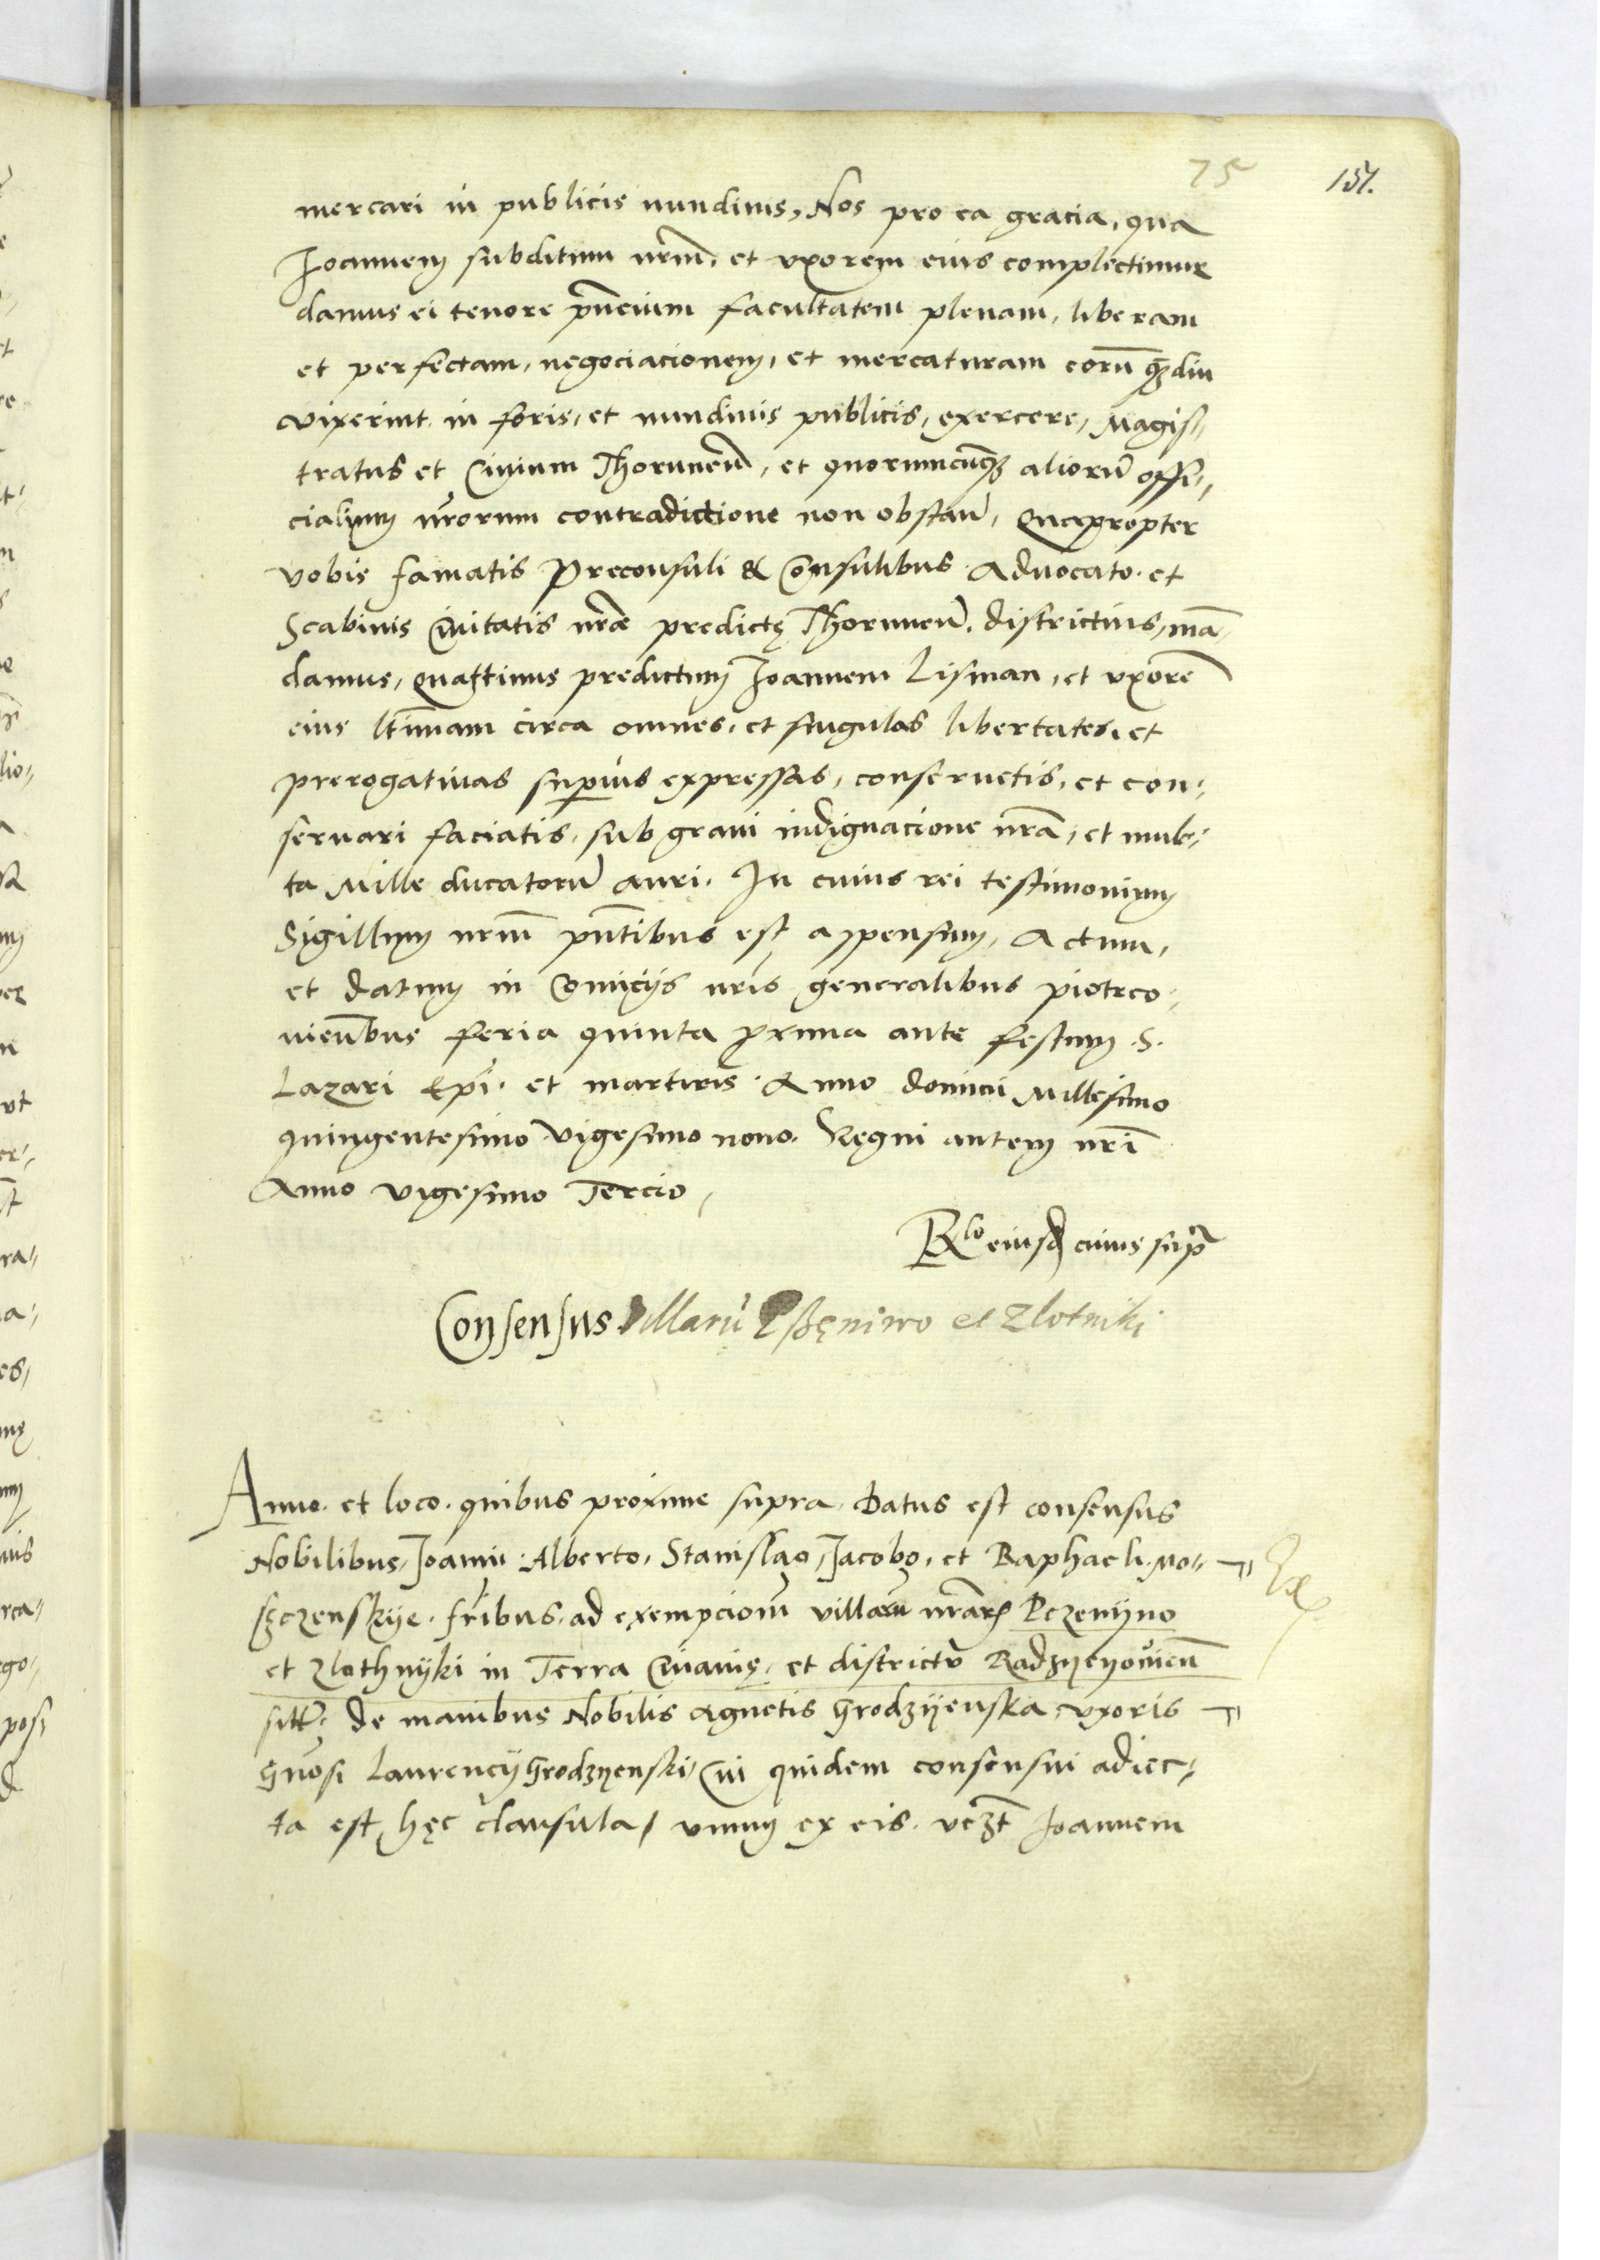 75 151.
mercari in publicis nundinis, Nos pro ea gracia, qua
Joannem subditum nrm̄, et vxorem eius complectimur
damus ei tenore pn̄cium facultatem plenam, liberam
et perfectam, negociacionem, et mercaturam eorū qꝫdiu
vixerint in foris, et nundinis publicis, exercere, Magis,,
tratus et Ciuium Thorunen̄, et quorumcūqꝫ aliorū offi,,
cialium nr̄orum contradictione non obstan̄, Quapropter
vobis famatis Preconsuli & Consulibus Aduocato et
Scabinis Ciuitatis nrae predictę Thorunen̄. districtius, mā,
damus, quattinus predictum Joannem Lisman, et vxorē
eius ltīmam circa omnes, et singulas libertates, et
prerogatiuas superius expressas, conseruetis, et con,,
seruari faciatis, sub graui indignacione nrā, et mulc,,
ta Mille ducatorū auri. In cuius rei testimonium
Sigillum nrm̄ pn̄tibus est appensum, Actum,
et datum in Comicijs nrīs generalibus piotrco,,
uien̄bus feria quinta proxima ante festum S.
Lazari Epī. et martiris Anno domini Millesimo
quingentesimo vigesimo nono. Regni autem nrī
Anno vigesimo Tercio,
Rlo eiusdē cuius supra
Consensus Villarū Pßęniwo et Zlotniki
Anno et loco quibus proxime supra Datus est consensus
Nobilibus, Joanni Alberto, Stanislao, Jacobo, et Raphaeli Mo,,
sczenskije fr̄ibus, ad exempcionē villarum nrār Pczenijno
et Zlothnijki in Terra Cuiauię, et districtu Radzyeyouien̄
sitt. de manibus Nobilis Agnetis Grodzijenska, vxoris
Gn̄osi Laurencij Grodzyenski, Cui quidem consensui adiec,,
ta est hęc clausula, vnum ex eis vczt Joannem